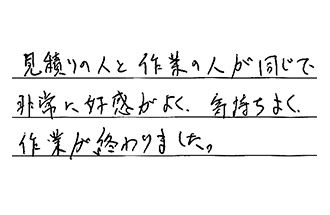 見積りの人と作業の人が同じで
非常に好感がよく、気持ちよく、
作業が終わりました。